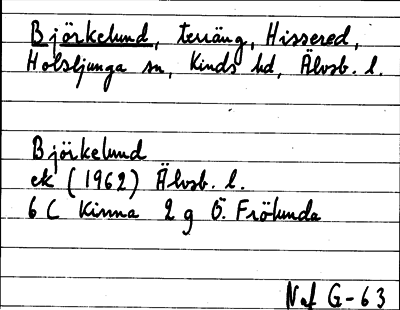 Björkelund, terräng, Hissered,
Holsljunga sn, Kinds hd, Älvsb. l.
Björkelund
ek (1962) Älvsb. l.
6 C Kinna 2 g Ö. Frölunda
Naf G-63